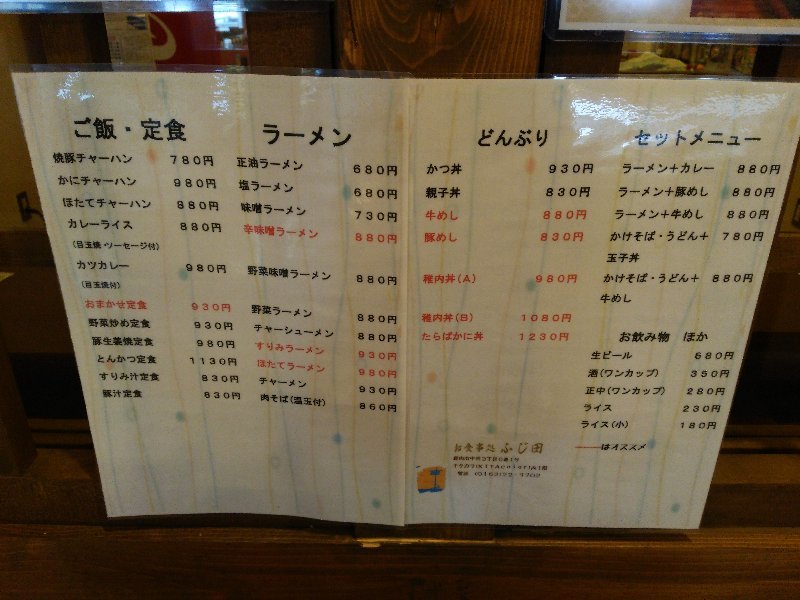 ご飯・定食
焼豚チャーハン 780円
かにチャーハン 980円
ほたてチャーハン 880円
カレーライス 880円
(目玉焼・ソーセージ付)
カツカレー 980円
(目玉焼付)
おまかせ定食 930円
野菜炒め定食 930円
豚生姜焼定食 980円
とんかつ定食 1130円
すりみ汁定食 830円
豚汁定食 830円
ラーメン
正油ラーメン 680円
塩ラーメン 680円
味噌ラーメン 730円
辛味噌ラーメン 880円
野菜味噌ラーメン 880円
野菜ラーメン 880円
チャーシューメン 880円
すりみラーメン 930円
ほたてラーメン 980円
チャーメン 930円
肉そば(温玉付) 860円
どんぶり
かつ丼 930円
親子丼 830円
牛めし 880円
豚めし 830円
稚内丼(A) 980円
稚内丼(B) 1080円
たらばかに丼 1230円
お食事処 ふじ田
セットメニュー
ラーメン+カレー 880円
ラーメン+豚めし 880円
ラーメン+牛めし 880円
かけそば・うどん+ 780円
玉子丼
かけそば・うどん+ 880円
牛めし
お飲み物 ほか
生ビール 680円
酒(ワンカップ) 350円
正中(ワンカップ) 280円
ライス 230円
ライス(小) 180円
――はオススメ